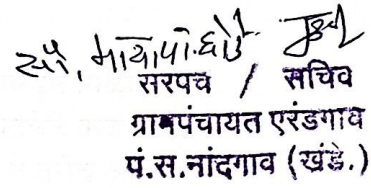 सौ. माया पो. घोडे
सरपच / सचिव
ग्रामपंचायत एरंडगाव
पं.स.नांदगाव (खंडे.)